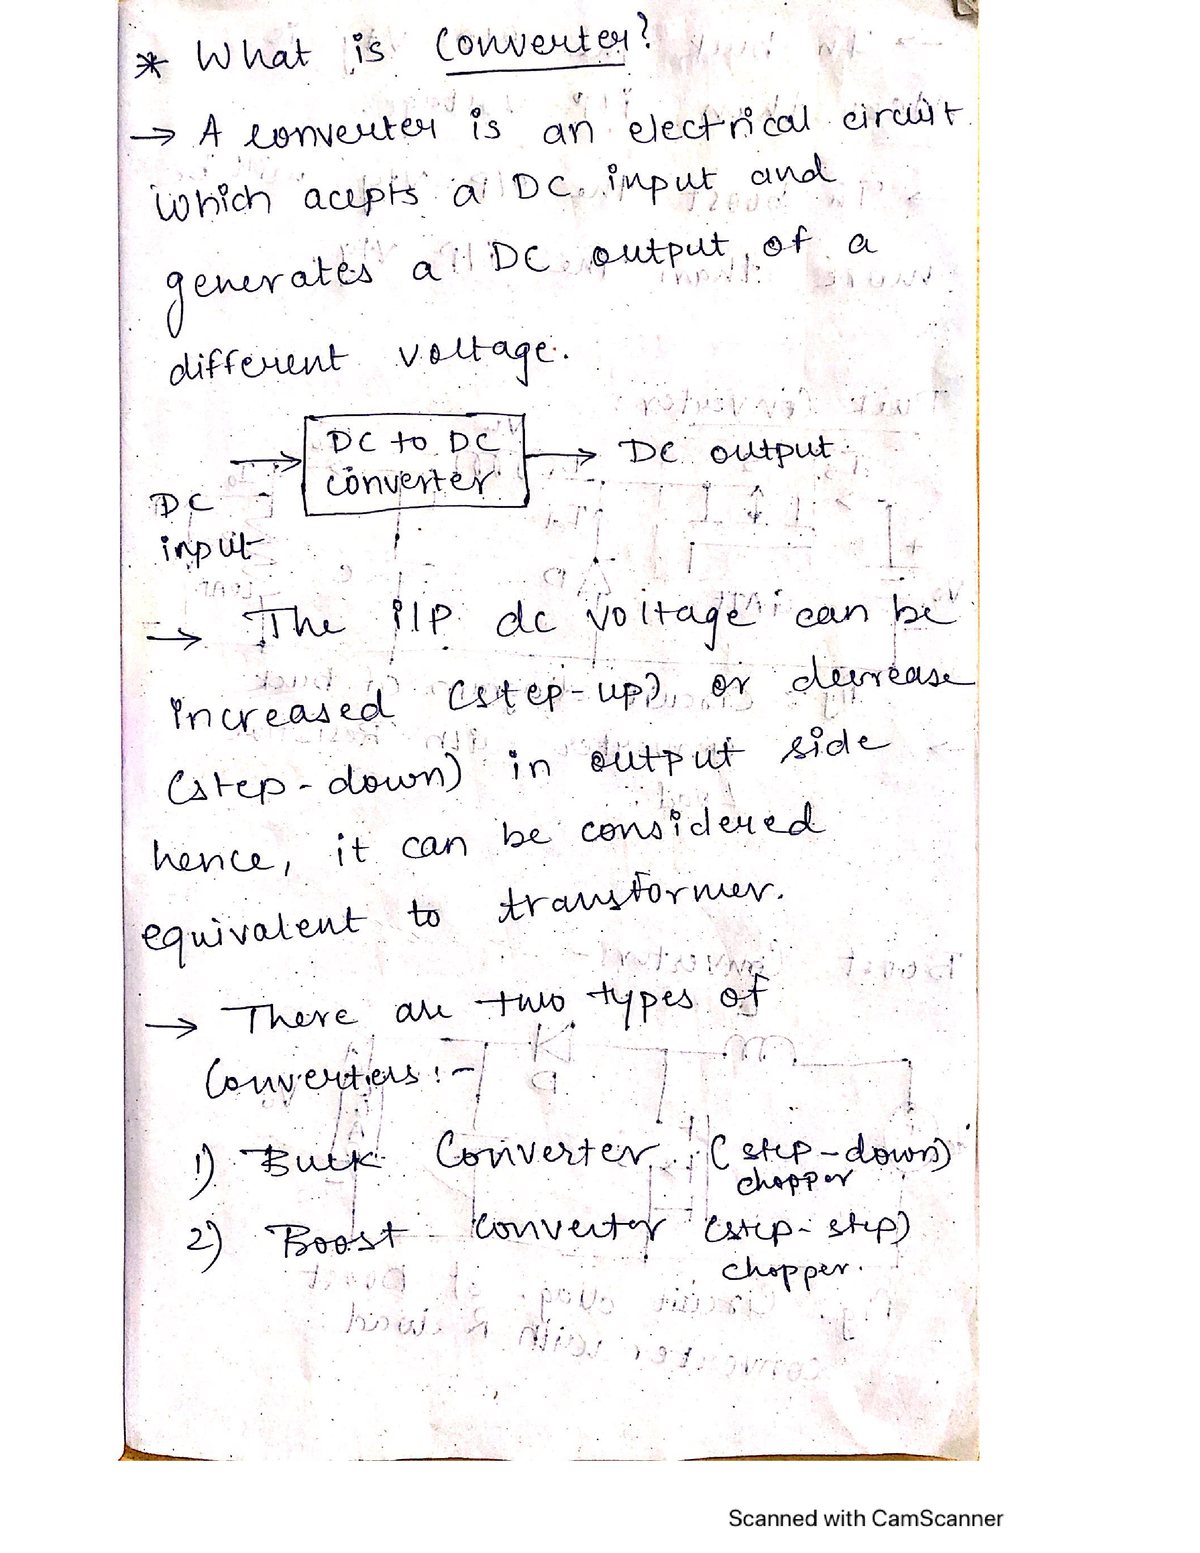 * What is Converter?
→ A converter is an electrical circuit
which acepts a DC input and
generates a DC output of a
different voltage.
DC to DC
converter
→ DC output
DC
input
→ The i/p dc voltage can be
increased (step-up) or decrease
(step-down) in output side
hence, it can be considered
equivalent to transformer.
→ There are two types of
Converters:-
1) Buck Converter (step-down)
chopper
2) Boost Converter (step-step)
chopper.
Scanned with CamScanner